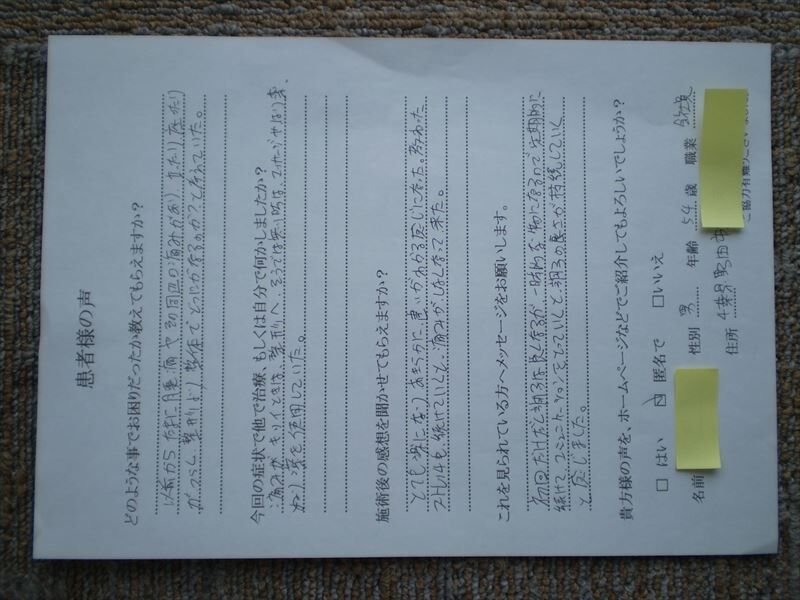 患者様の声
どのような事でお困りだったか教えてもらえますか?
以前から たまに腰痛や
整形より整体でどうにかなるのか?と考えていた。
今回の症状で他で治療、もしくは自分で何かしましたか?
痛みが キツイときは、整形へ、
薬を使用していた。
施術後の感想を聞かせてもらえますか?
とても楽になり あきらかに、良いがわかる感じになった。教わった
ストレッチも 続けていくと、痛みがしなくなって来た。
これを見られている方へメッセージをお願いします。
初回だけだと調子は良くなるが 一時的な 物になるので 定期的に
続けて コミュニケーションをとっていくと、調子の良さが 持続していく
と 感じました。
貴方様の声を、ホームページなどでご紹介してもよろしいでしょうか?
□ はい ☑ 匿名で □いいえ
名前 性別 男 年齢 54 歳 職業 会社員
住所 千葉県野田市
ご協力有難うございました